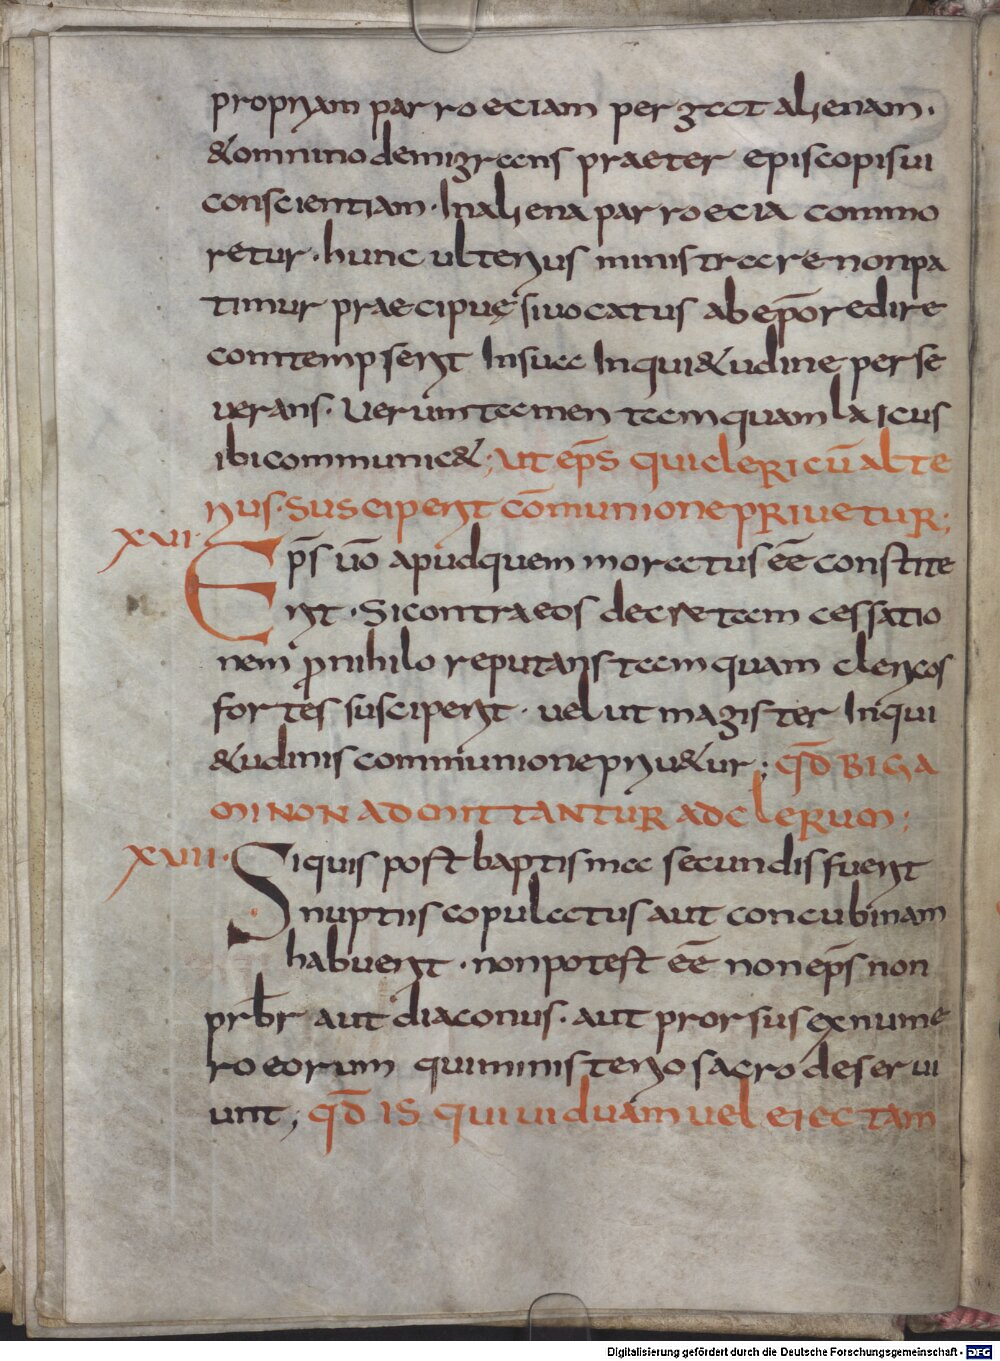 propriam parroeciam pergat alienam.
&omnino demigrans praeter episcopi sui
conscientiam. In aliena parroecia commo
retur. hunc ulterius ministrare non pa
timur praecipuę si uocatus ab ep̄o redire
contempserit In sua Inqui&udine perse
uerans. Uerum tamen tamquam laicus
ibi communic&; ut ep̄s qui clericū alte
rius. susciperit cōmunione priuetur;
XVI. Ep̄s ūo apud quem moratus eē constite
rit. Si contra eos decretam cessatio
nem p̄ nihilo reputans tamquam clericos
fortes susciperit. uelut magister Inqui
&udinis communione priu&ur; qd̄ biga
mi non admittantur ad clerum;
XVII. Siquis post baptisma secundis fuerit
nuptiis copulatus aut concubinam
habuerit. non potest eē non ep̄s non
prbr̄ aut diaconus. aut prorsus ex nume
ro eorum qui ministerio sacro deserui
unt; qd̄ is qui uiduam uel eiectam
Digitalisierung gefördert durch die Deutsche Forschungsgemeinschaft - DFG